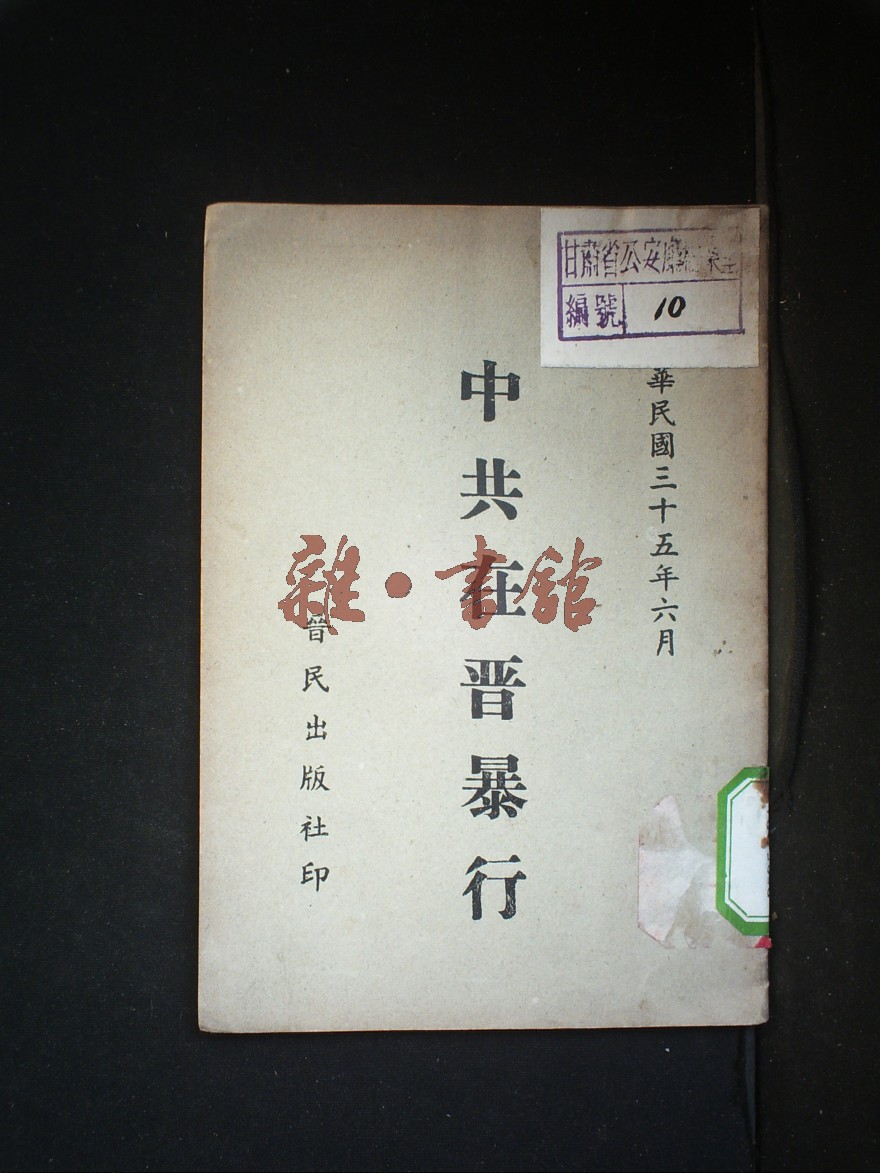 甘肅省公安廳
編號 10
華民國三十五年六月
中共在晋暴行
晋民出版社印
雜·書館